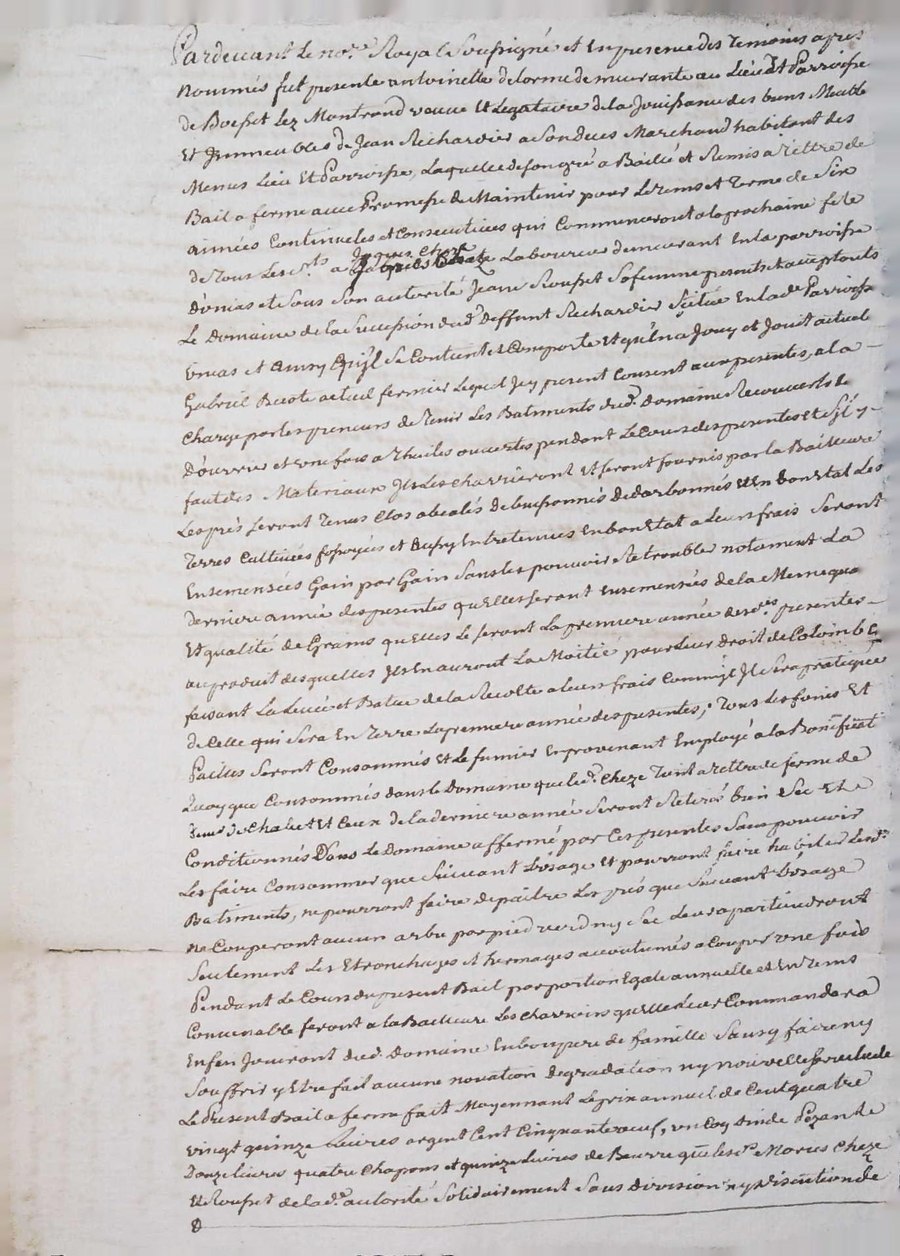 Pardevant le no.re Royal Soussigné et En presence des Temoins apres
nommés fut presente antoinette delorme demeurante au Lieu Et Parroisse
de Boisset Lez Montrond veuve Et Legataire de la Jouissance des biens Meuble
Et Immeubles de Jean Richardier a Son deces Marchand habitant des
Memes Lieu Et Parroisse, Laquelle de son gré a Baillé et Remis a tittre de
Bail a ferme avec Promesse de Maintenir pour Le tems et Terme de Six
années Continueles et Consecutives qui Commenceront a la prochaine fete
de Tous Les S.ts a Laboureur demeurant En la parroisse
d'unias et Sous Son autorité Jeane Rousset Sa femme presents et acceptants
Le Domaine de la Succession dud. Deffunt Richardier Scitué En lad. Parroisse
unias et ainsy qu'il Se Contient et Comporte Et qu'il n'a Jouy et Jouit actuel
Gabriel actuel fermier Lequel Icy present Consent aux presentes, a la
Charge par les preneurs de Tenir Les Batiments dud. Domaine Recouverts
d'ouvrier et une fois a Thuiles ouvertes pendant Le Cours des presentes et S'il y
faut des Materiaux Ils Les Charrieront Et Seront fournis par la Bailleure
Les prés Seront Tenus Clos de buissonnés dedarbonnés Et En bon Etat Les
Terres Cultivées fossoyées et aussy Entretenues En bon Etat a Leurs frais Seront
Ensemensées Gain par Gain Sans les pouvoir Retroubler notament La
derniere année des presentes qu'Elles Seront Ensemensées de la Meme qua
Et qualité de Grains qu'Elles Le Seront La premiere année des presentes
au produit desquelles Ils En auront La Moitié pour Leur droit de Colombe
faisant La Levée et Batue de la Recolte a leurs frais Comm'il Il Sera pratiqué
de Celle qui Sera En Terre La premiere année des presentes, Tous Les foins Et
Pailles Seront Consommés et Le fumier En provenant Employé a la Bonificat
quoy que Consommés dans le Domaine que led. Cheze Tient a Tittre de ferme de
de Chalet Et Ceux de la derniere année Seront Retirés bien Sec Et
Conditionnés Dans Le Domaine affermé par Ces presentes Sans pouvoir
Les faire Consommer que Suivant L'usage Et pourront faire habiter Lesd.
Batiments, ne pourront faire depaitre Les prés que Suivant L'usage
ne Couperont aucun arbre par pied verd ny Sec Leurs apartiendront
Seulement Les Etronchages et hermages accoutumés a Couper une fois
Pendant Le Cours du present Bail par portion Egale annuelle et En Tems
Convenable feront a la Bailleure Les Charrois qu'Elle Leur Commandera
Enfen Jouiront dud. Domaine En bon pere de famille Sans y faire ny
Souffrir y Etre fait aucune novation degradation ny nouvelle Servitude
Le Present Bail a ferme fait Moyennant Le prix annuel de Cent quatre
vingt quinze Livres argent Cent Cinquante œuf, un Coq dinde Pezante
Douze livres quatre Chapons et quinze Livres de Beurre que les Mariés Cheze
Et Rousset de lad. autorité Solidairement Sans division ny discution de